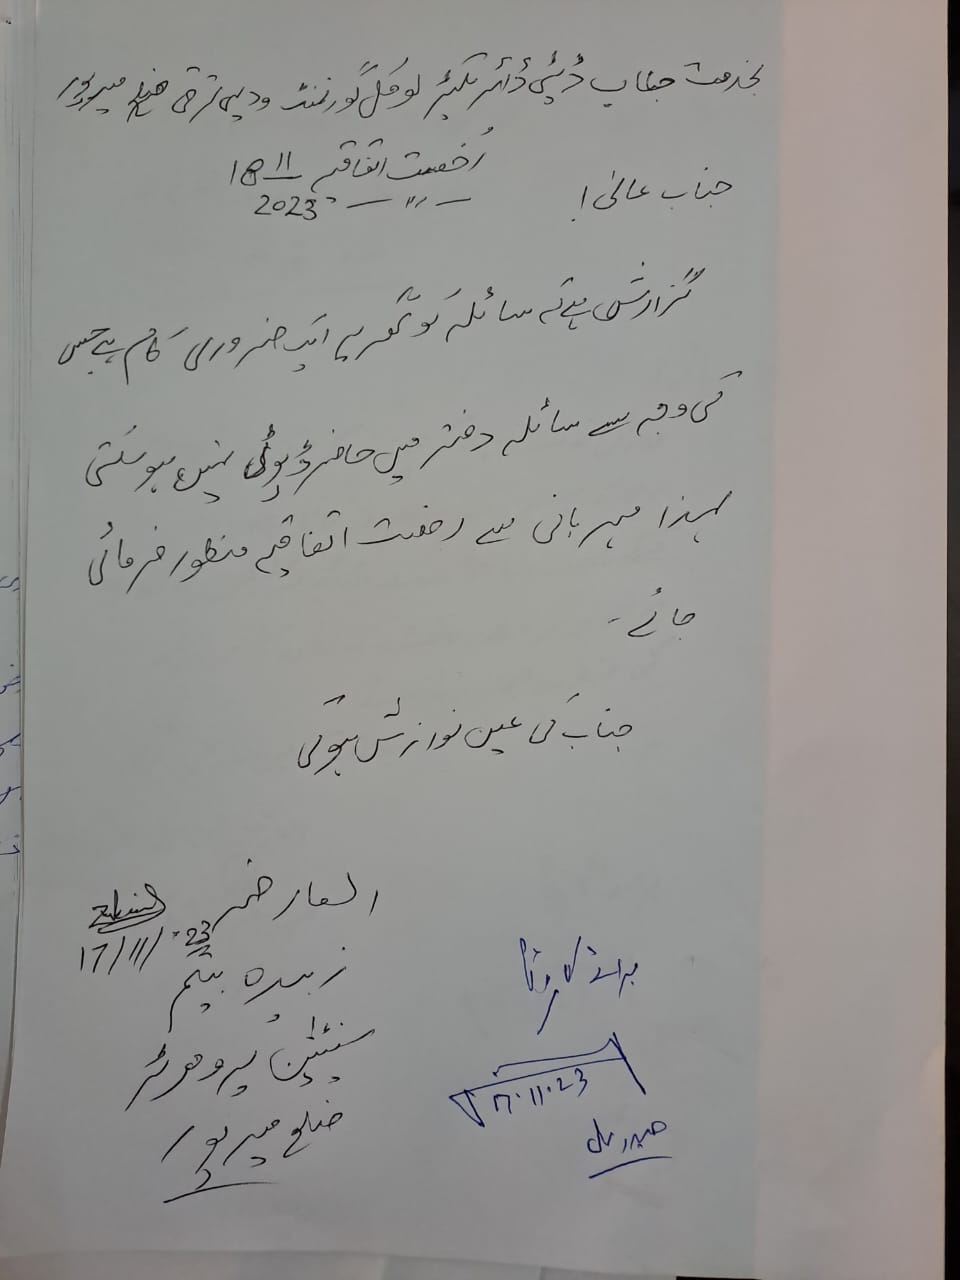 بخدمت جناب ڈپٹی ڈائریکٹر لوکل گورنمنٹ ودیہی ترقی ضلع میرپور
رُخصت اتفاقیہ 18 11
جناب عالیٰ! 2023
گزارش ہےکہ سائلہ کو گھر پہ ایک ضروری کام ہے جس
کی وجہ سے سائلہ دفتر میں حاضر ڈیوٹی نہیں ہوسکتی
لہذا مہربانی سے رخصت اتفاقیہ منظور فرمائی
جائے۔
جناب کی عین نوازش ہوگی
العارضہ
17/11/23
زبیدہ بیگم
سینٹیشن پروموٹر
ضلع میرپور
17.11.23